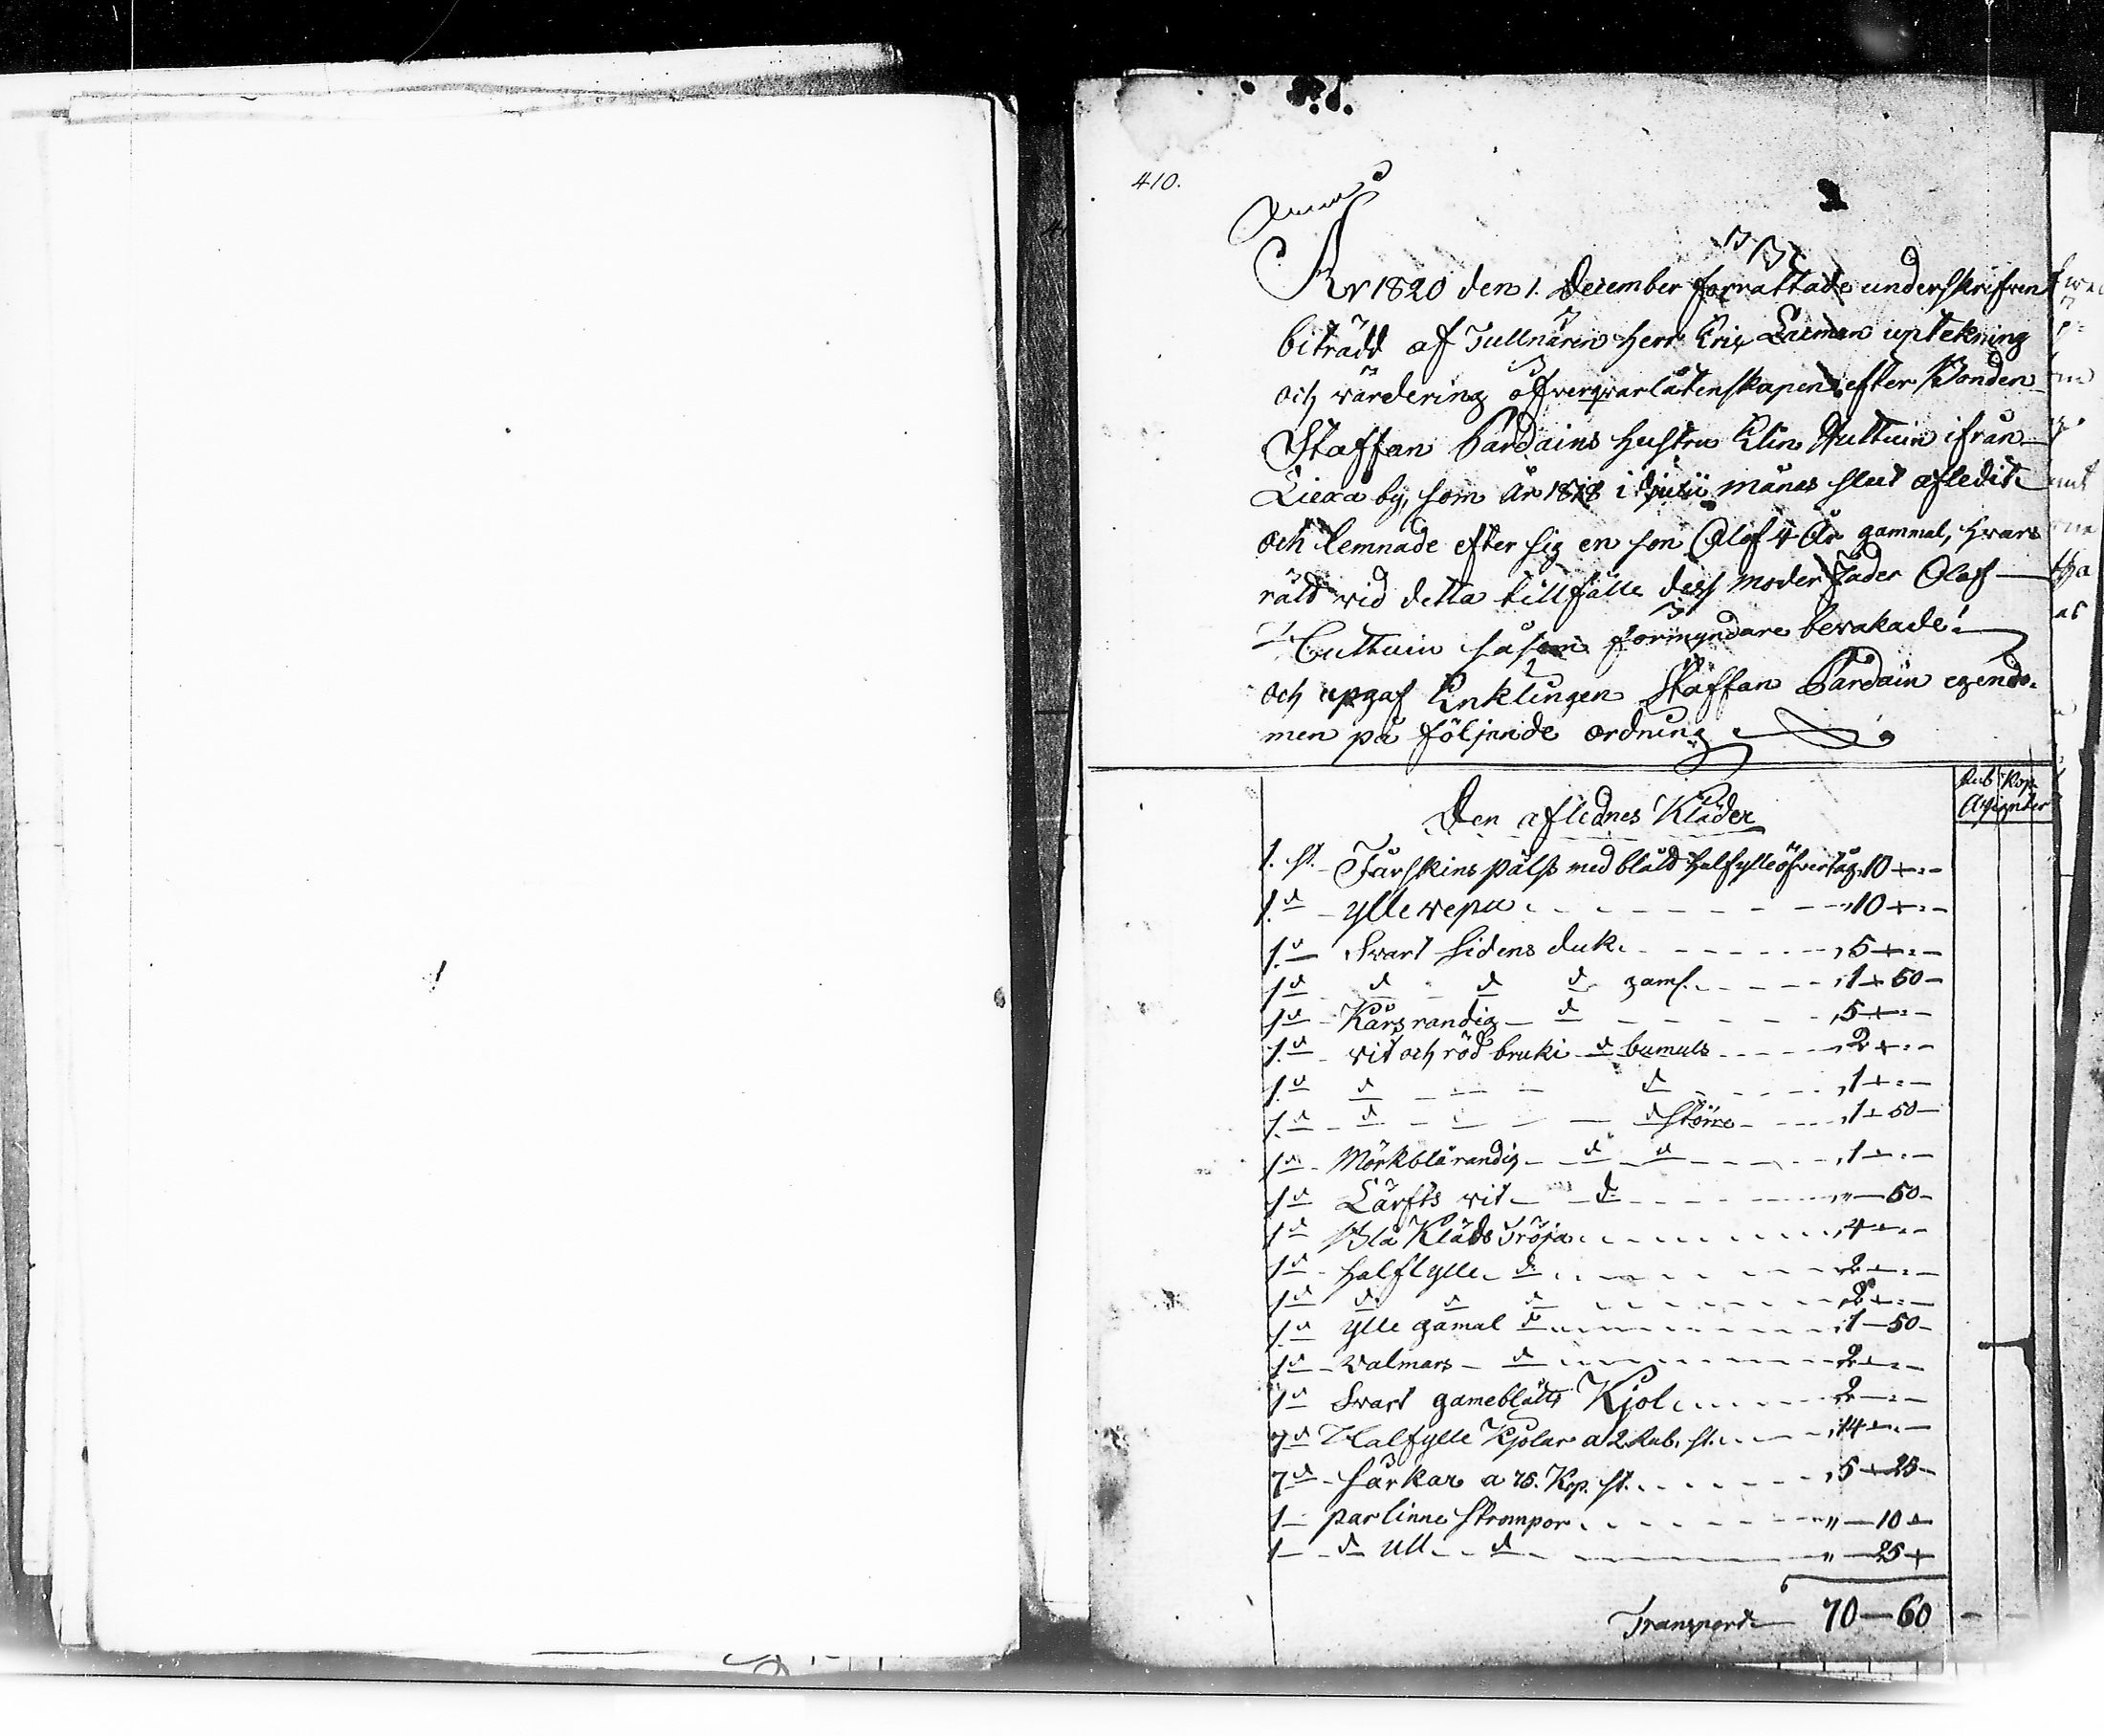 410.
År 1820 den 1. December förrättade underskrifven
biträdd af Tullnären Herr Eric Laiman uptekning
och värdering öfver qvarlåtenskapen efter Bonden
Staffan Pardains hustru Elin Huttuin ifrån
Liexa by, som År 1818 i Junii månas slut afledit
och lemnade efter sig en son Olof 4 År gammal, hvars
rätt vid detta tillfälle dess Moder Fader Olof
Huttuin såsom förmyndare bevakade!
och upgaf Enklingen Staffan Pardain egendo-
men på följande ordning
Rub Kop
Assignater
Den aflednes Kläder
1. st. Fårskins pälss med blått halfylle öfvertåg 10 - " -
1 d ylle vepa 10 - " -
1 d Svart Sidens duk 5 - " -
1 d d d d gaml. 1 - 50 -
1 d Kårs randig d 5 - " -
1 d vit och röd bruki d bumuls 2 - " -
1 d d d 1 - " -
1 d d d större 1 - 50 -
1 d Mörkblårandig d d 1 - " -
1 d Lärfts vit d " - 50 -
1 d Blå Kläds Tröja 4 - " -
1 d halfylle d 2 - " -
1 d d d d 2 - " -
1 d ylle gamal d 1 - 50 -
1 d Valmars d 2 - " -
1 d Svart Kjol 2 - " -
7 d Halfylle Kjolar a 2 Rub. st. 14 - " -
7 d Särkar a 75. Kop. st. 5 - 25 -
1 par linne Strumpor " - 10 -
1 d Ull d " - 25 -
Transport 70 - 60